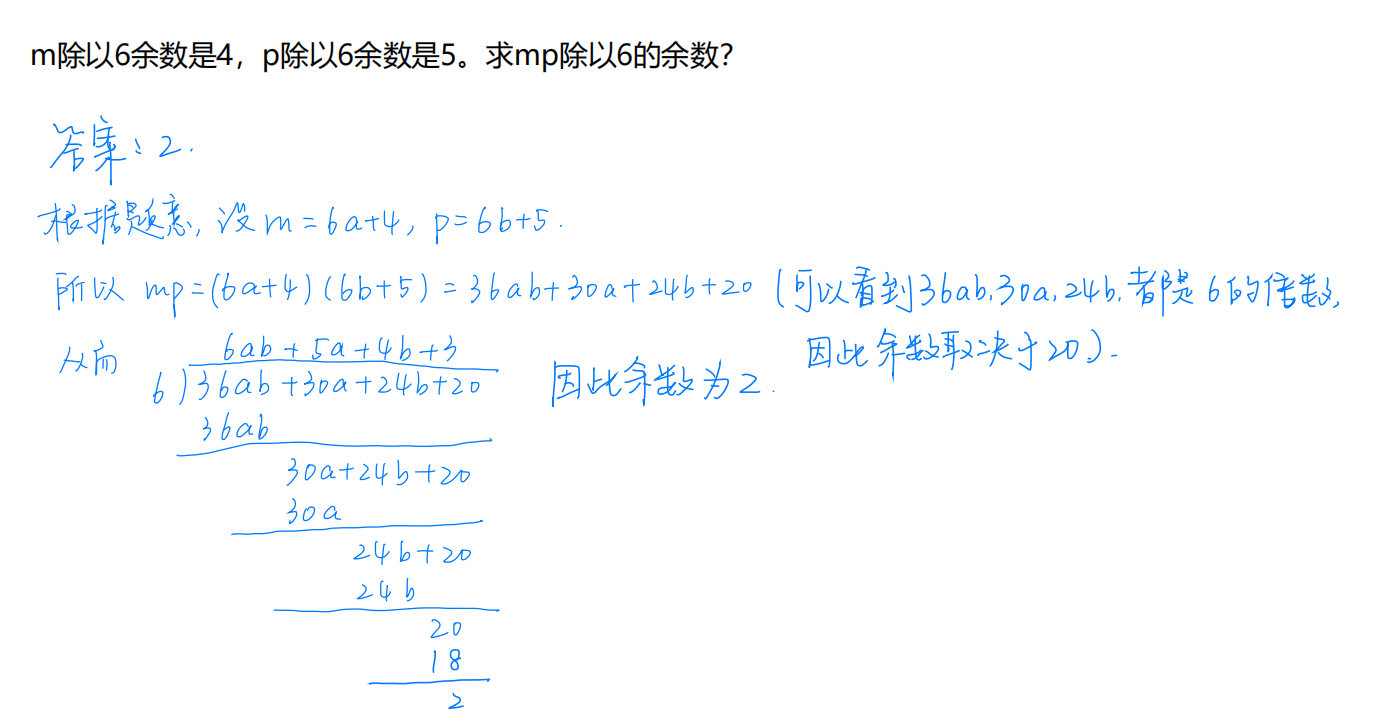 m除以6余数是4，p除以6余数是5。求mp除以6的余数？
答案：2.
根据题意，设 m=6a+4, p=6b+5.
所以 mp=(6a+4)(6b+5)=36ab+30a+24b+20 (可以看到36ab,30a,24b,都是6的倍数,
因此余数取决于20).
从而
6ab+5a+4b+3
6)36ab+30a+24b+20
因此余数为2.
36ab
30a+24b+20
30a
24b+20
24b
20
18
2